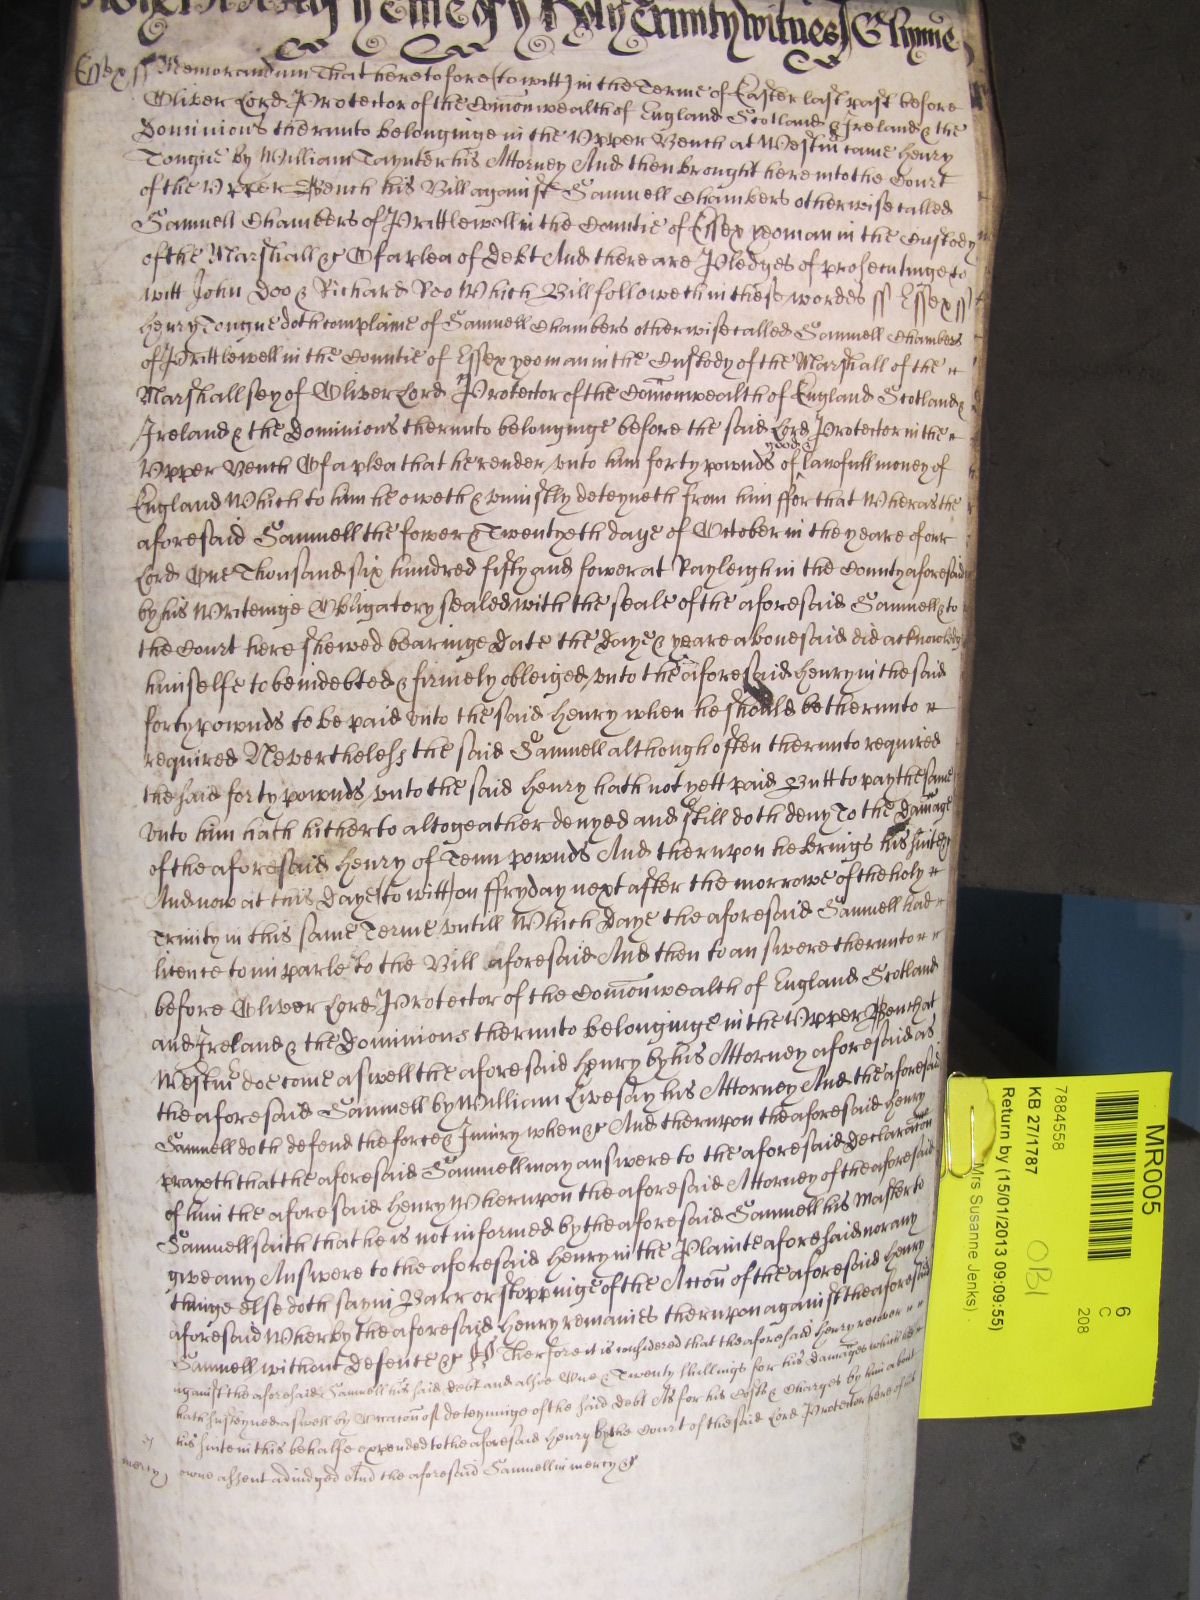 of the Holy Trinity witnes J Glynne
Essex ss Memorandum That heretofore (to witt) in the Terme of Easter last past before
Oliver Lord Protector of the Comonwealth of England Scotland & Ireland & the
Dominions therunto belonginge in the Upper Bench at Westm came Henry
Tongue by William Taynter his Attorney And then brought here into the Court
of the Upper Bench his Bill against Samuell Chambers otherwise called
Samuell Chambers of Prittlewell in the Countie of Essex yeoman in the Custody
of the Marshall &c Of a plea of Debt And there are Pledges of prosecutinge to
witt John Doo & Richard Roo Which Bill followeth in these wordes ss Essex ss
Henry Tongue doth complaine of Samuell Chambers otherwise called Samuell Chambers
of Prittlewell in the Countie of Essex yeoman in the Custody of the Marshall of the
Marshallsey of Oliver Lord Protector of the Comonwealth of England Scotland &
Ireland & the Dominions therunto belonginge before the said Lord Protector in the
good &
Upper Bench Of a plea that he render unto him forty pownds of lawfull money of
England Which to him he oweth & uniustly deteyneth from him ffor that Wheras the
aforesaid Samuell the fower & Twentyeth daye of October in the yeare of our
Lord One Thousand six hundred fifty and fower at Rayleigh in the County aforesaid
by his Writeinge Obligatory sealed with the seale of the aforesaid Samuell & to
the Court here shewed bearinge Date the Daye & yeare abovesaid did acknowledg
himselfe to be indebted & firmely obleiged unto the aforesaid Henry in the said
forty pownds to be paid unto the said Henry when he should be therunto
required Neverthelesse the said Samuell although often therunto required
the said forty pownds unto the said Henry hath not yett paid Butt to pay the same
unto him hath hitherto altogeather denyed and still doth deny To the Damage
of the aforesaid Henry of Tenn pownds And therupon he brings his suite &c
And now at this Daye (to witt) on ffryday next after the morrowe of the holy
Trinity in this same Terme untill Which Daye the aforesaid Samuell had
licence to imparle to the Bill aforesaid And then to answere therunto
before Oliver Lord Protector of the Comonwealth of England Scotland
and Ireland & the Dominions therunto belonginge in the Upper Bench at
Westm doe come aswell the aforesaid Henry by his Attorney aforesaid as
the aforesaid Samuell by William Livesay his Attorney And the aforesaid
Samuell doth defend the force & Iniury when &c And therupon the aforesaid Henry
prayeth that the aforesaid Samuell may answere to the aforesaid Declaracon
of him the aforesaid Henry Wherupon the aforesaid Attorney of the aforesaid
Samuell saith that he is not informed by the aforesaid Samuell his Master to
give any Answere to the aforesaid Henry in the Plainte aforesaid nor any
thinge else doth say in Barr or stoppinge of the Accon of the aforesaid Henry
aforesaid Wherby the aforesaid Henry remaines therupon against the aforesaid
Samuell without defence &c Therfore it is considered that the aforesaid Henry recover
against the aforesaid Samuell his said debt and alsoe One & Twenty shillings for his damages which he
hath susteyned aswell by Occacon of deteyninge of the said debt As for his Costs & Charges by him about
his suite in this behalfe expended to the aforesaid Henry by the Court of the said Lord Protector here of his
mercy owne assent adiudged And the aforesaid Samuell in mercy &c
MR005
6
C
208
7884558
KB 27/1787
OBI
Return by (15/01/2013 09:09:55)
Mrs Susanne Jenks)